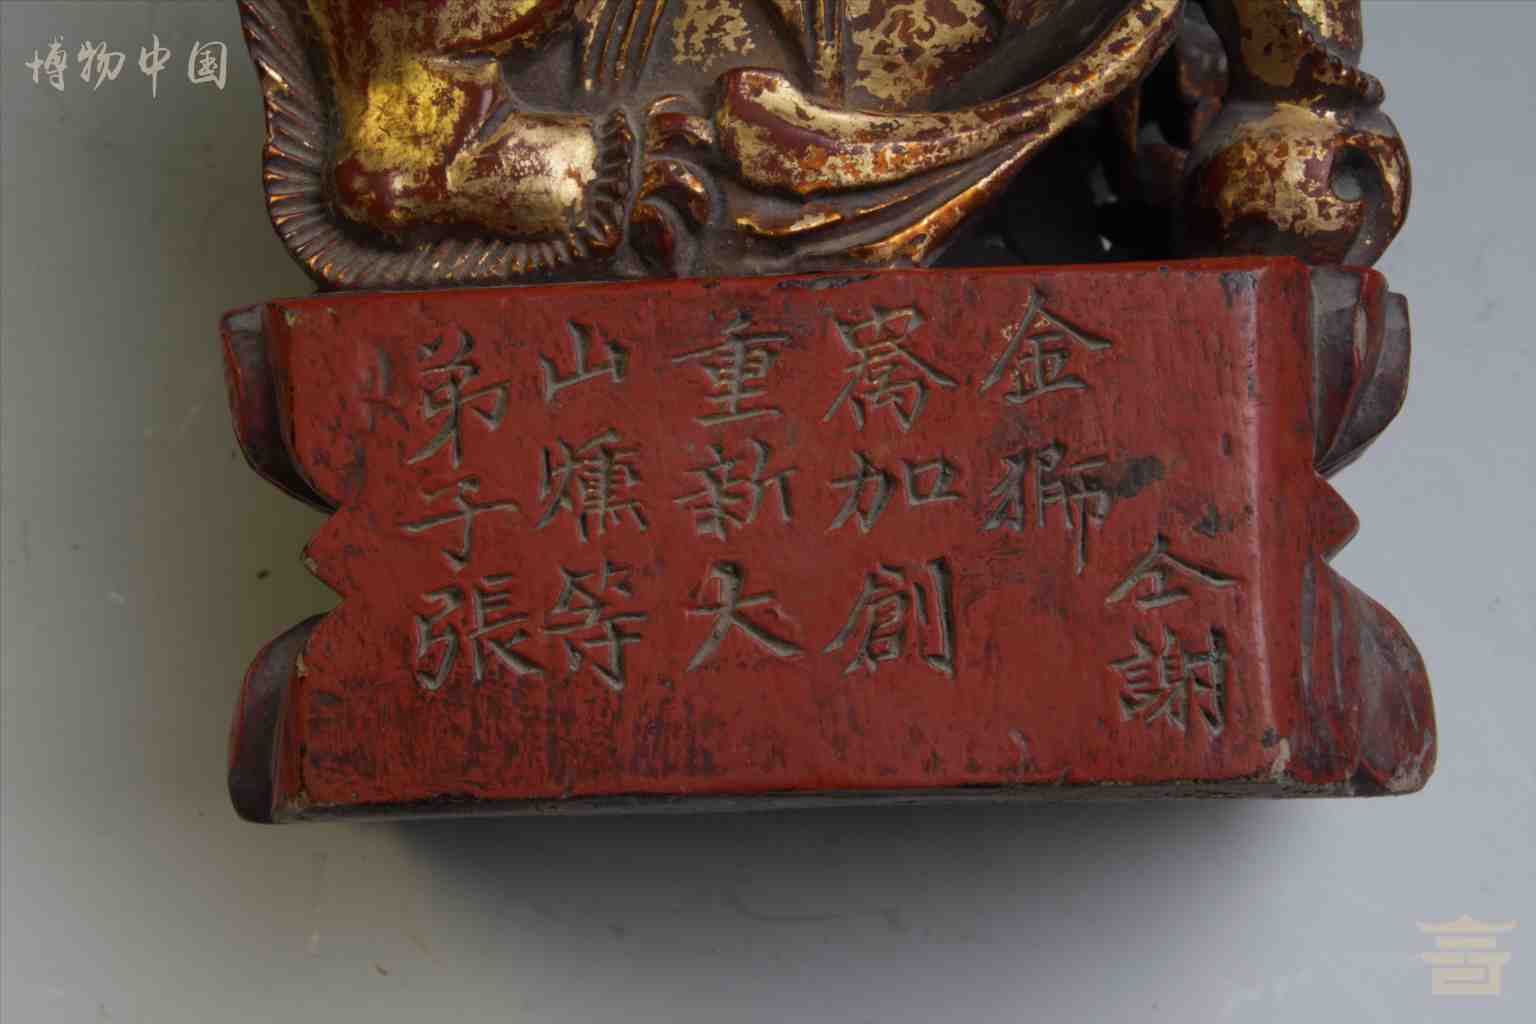 博物中国
弟子張
山燻等
重新大
嵩加創
金獅
仝謝